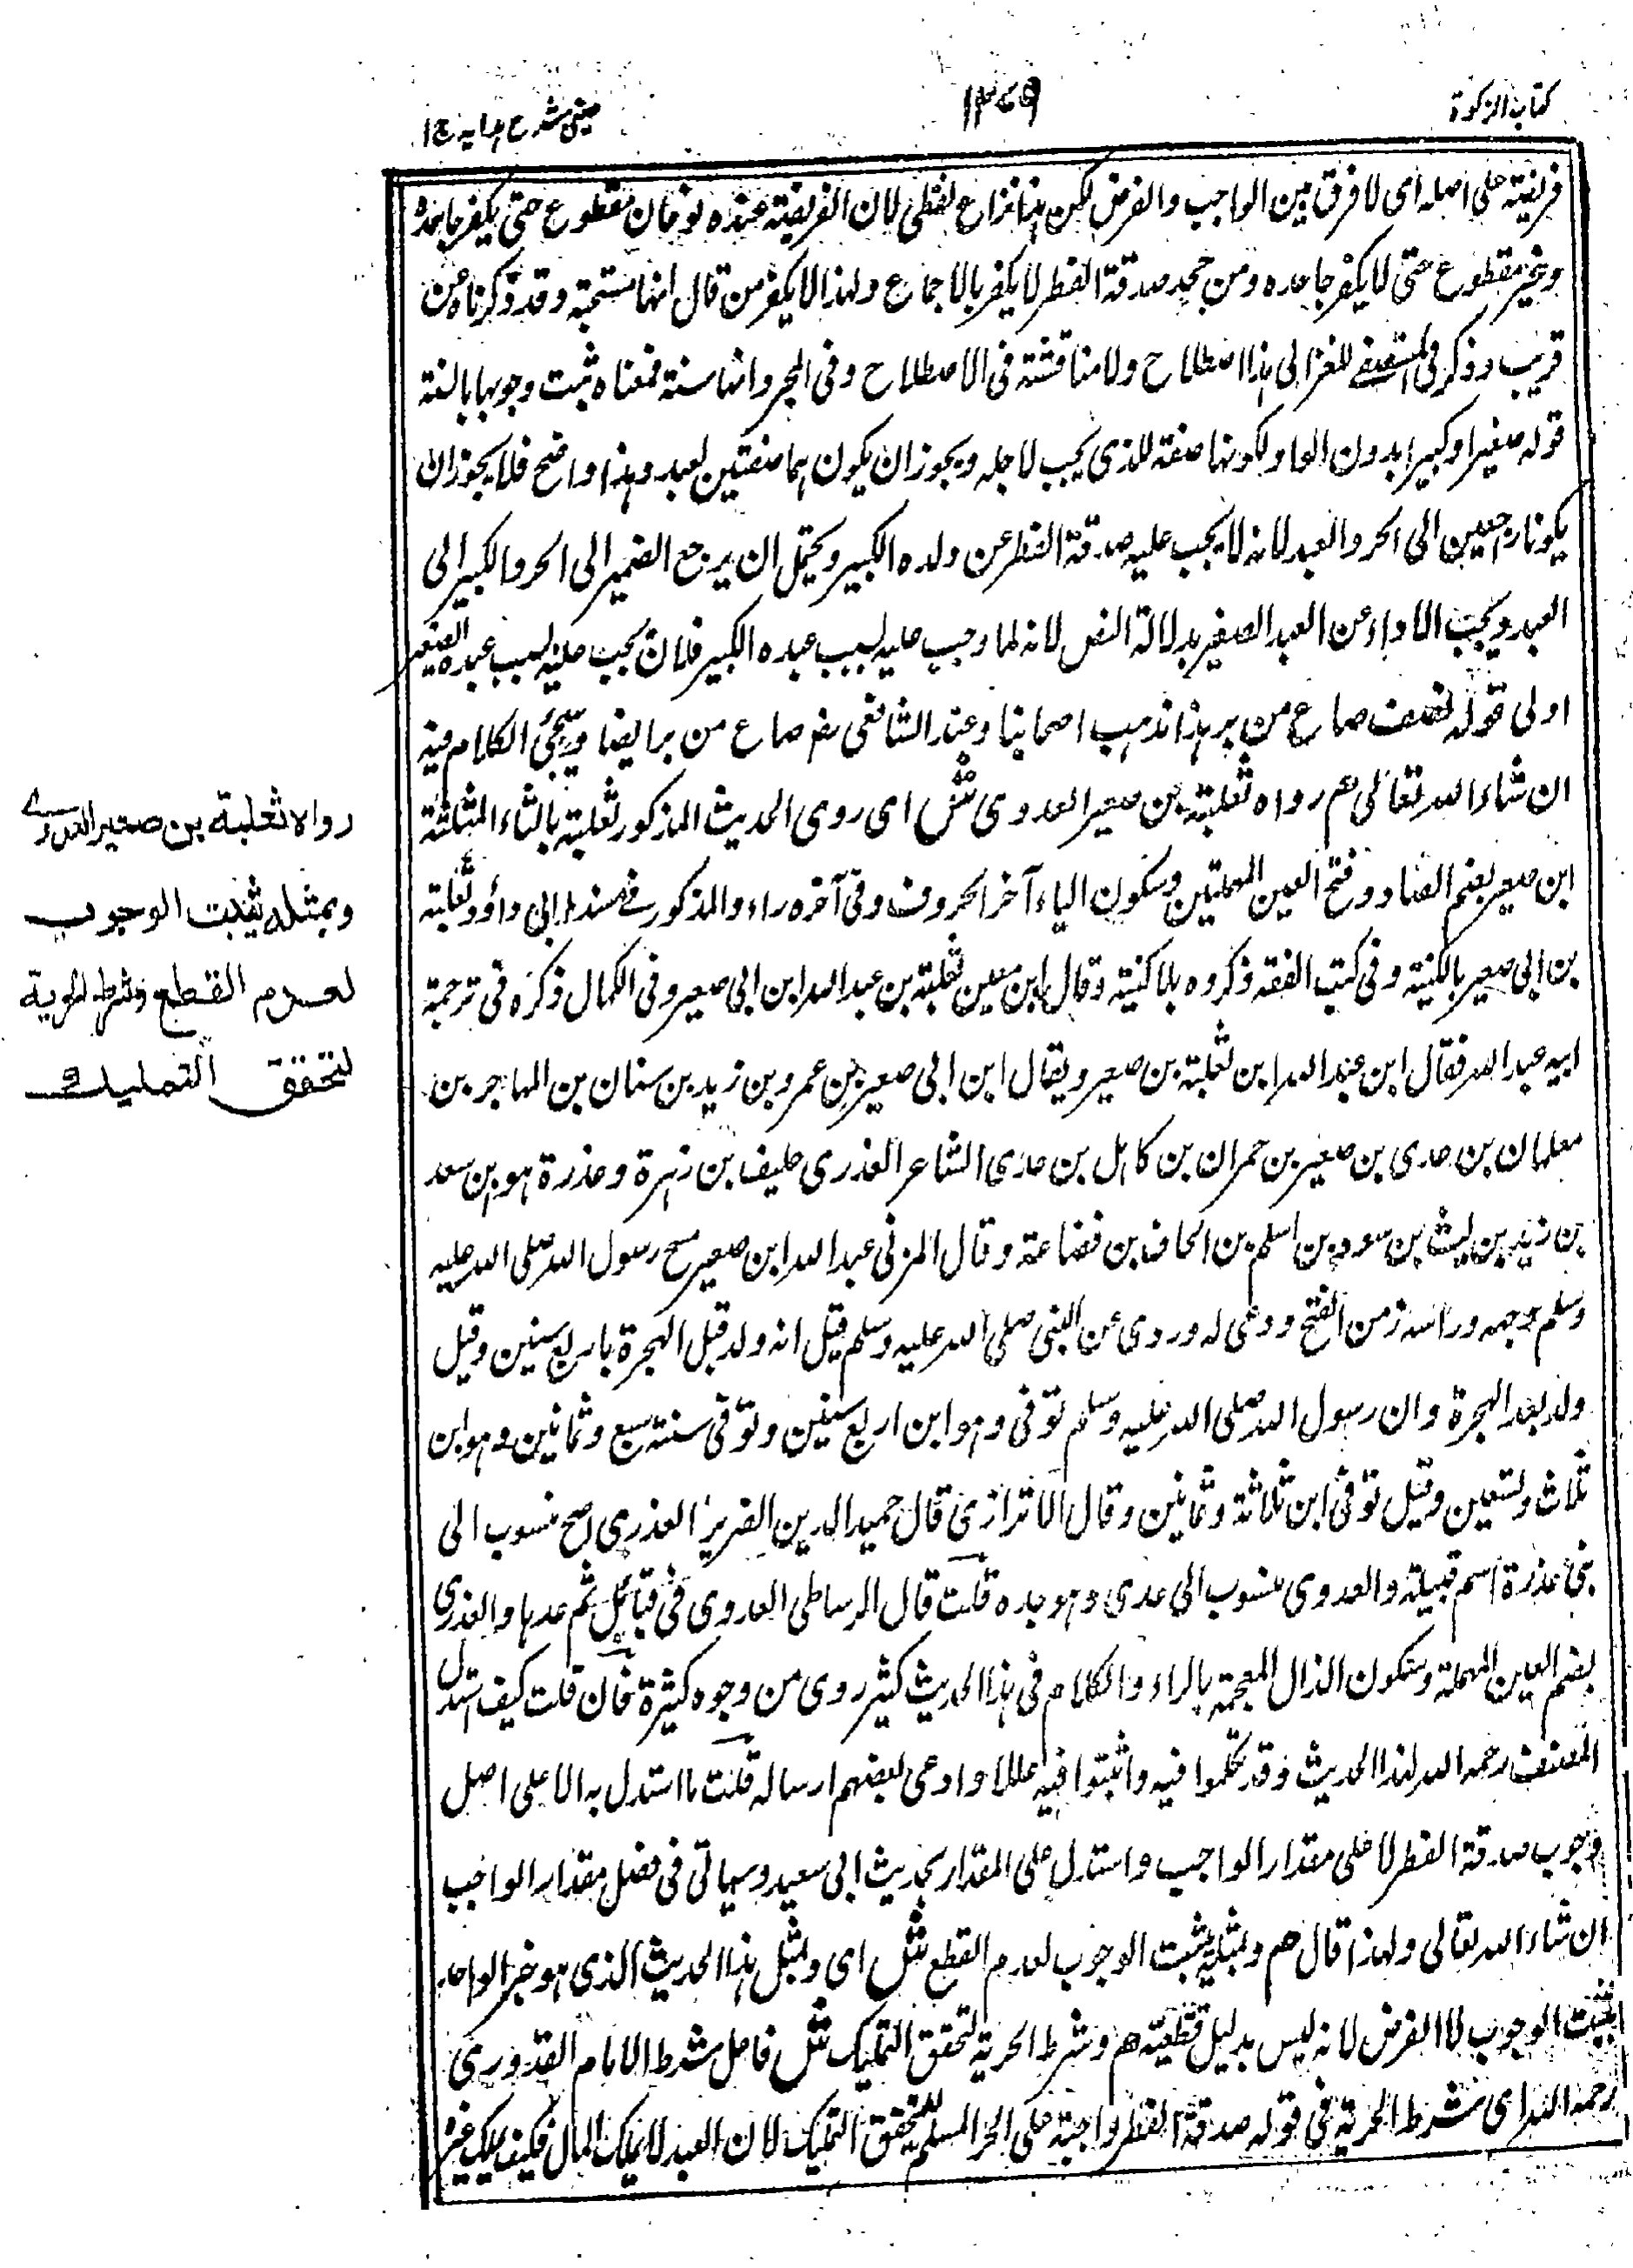 كتاب الزكوة
١٣٧٩
عينى شرح هدايه ج١
فريضة على اصله اى لا فرق بين الواجب والفرض لكن هذا نزاع لفظى لان الفريضة عنده نوعان مقطوع حتى يكفر جاحده
وغير مقطوع حتى لا يكفر جاحده ومن جحد صدقة الفطر لا يكفر بالاجماع ولهذا لا يكفر من قال انها مستحبة وقد ذكرناه عن
قريب وذكر فى المستصفى للغزالى هذا اصطلاح ولا مناقشة فى الاصطلاح وفى المجرد انها سنة فمعناه ثبت وجوبها بالسنة
قوله صغيرا وكبيرا بدون الواو لكونها صفة للذى يجب لاجله ويجوز ان يكون هما صفتين لعبد وهذا واضح فلا يجوز ان
يكونا راجعين الى الحر والعبد لانه لا يجب عليه صدقة الفطر عن ولده الكبير ويحتمل ان يرجع الضمير الى الحر والكبير الى
العبد ويجب الاداء عن العبد الصغير بدلالة النص لانه لما وجب عليه بسبب عبده الكبير فلان يجب عليه بسبب عبده الصغير
اولى قوله نصف صاع من بر هذا مذهب اصحابنا وعند الشافعى رضـ صاع من بر ايضا وسيجئ الكلام فيه
ان شاء الله تعالى هم رواه ثعلبة بن صعير العدوى ش اى روى الحديث المذكور ثعلبة بالثاء المثلثة
ابن صعير بضم الصاد وفتح العين المهملتين وسكون الياء آخر الحروف وفى آخره راء والمذكور فے مسند ابى داؤد ثعلبة
بن ابى صعير بالكنية وفى كتب الفقه ذكروه بلا كنية وقال ابن معين ثعلبة بن عبد الله ابن ابى صعير وفى الكمال ذكره فى ترجمة
ابيه عبد الله فقال ابن عبد الله ابن ثعلبة بن صعير ويقال ابن ابى صعير بن عمرو بن زيد بن سنان بن المهاجر بن
سلمان بن عدى بن صعير بن حمران بن كاهل بن عدى الشاعر العذرى حليف بن زهرة وعذرة هو ابن سعد
بن زيد بن ليث بن سود بن اسلم بن الحاف بن قضاعة وقال المزنى عبد الله ابن صعير مسح رسول الله صلى الله عليه
وسلم وجهه وراسه زمن الفتح ودعى له وروى عن النبى صلى الله عليه وسلم قيل انه ولد قبل الهجرة باربع سنين وقيل
ولد بعد الهجرة وان رسول الله صلى الله عليه وسلم توفى وهو ابن اربع سنين وتوفى سنة سبع وثمانين وهو ابن
ثلاث وتسعين وقيل توفى ابن ثلاثة وثمانين وقال الاترازى قال حميد الدين الضرير العذرى اصح منسوب الى
بنى عذرة اسم قبيلة والعدوى منسوب الى عدى وهو جده قلت قال الرساطى العدوى فى قبائل ثم عدها والعذرى
بضم العين المهملة وسكون الذال المعجمة بالراء والكلام فى هذا الحديث كثير روى من وجوه كثيرة فان قلت كيف استدل
المصنف رحمه الله لهذا الحديث وقد تكلموا فيه واثبتوا فيه عللا وادعى بعضهم ارساله قلت ما استدل به الا على اصل
وجوب صدقة الفطر لا على مقدار الواجب واستدل على المقدار بحديث ابى سعيد وسياتى فى فصل مقدار الواجب
ان شاء الله تعالى ولهذا قال هم وبمثله يثبت الوجوب لعدم القطع ش اى وبمثل هذا الحديث الذى هو خبر الواحد
يثبت الوجوب لا الفرض لانه ليس بدليل قطعية هم وشرط الحرية لتحقق التمليك ش فاصل شرط الامام القدورى
رحمه الله اى شرط الحرية فى قوله صدقة الفطر واجبة على الحر المسلم لتحقق التمليك لان العبد لا يملك المال فكيف يملك غيره
رواه ثعلبة بن صعير العدوى
وبمثله يثبت الوجوب
لعدم القطع وشرط الحرية
لتحقق التمليك